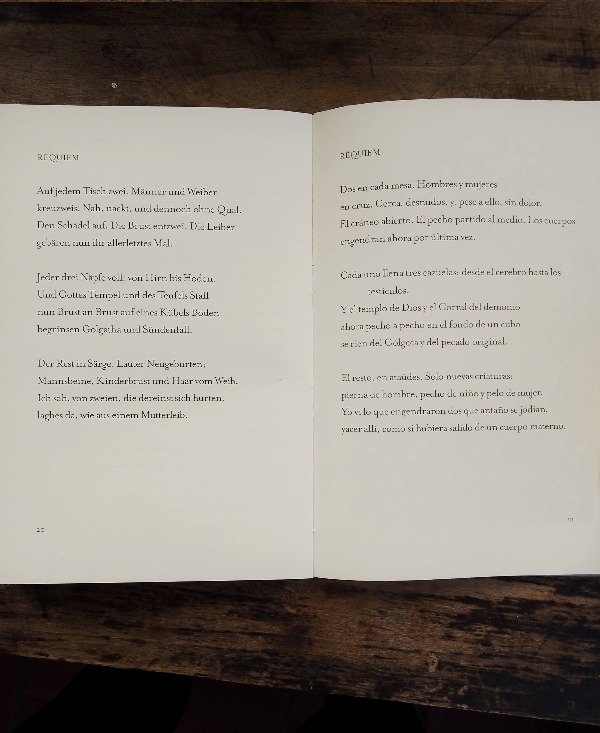 REQUIEM
Auf jedem Tisch zwei. Männer und Weiber
kreuzweis. Nah, nackt, und dennoch ohne Qual.
Den Schädel auf. Die Brust entzwei. Die Leiber
gebären nun ihr allerletztes Mal.
Jeder drei Näpfe voll: von Hirn bis Hoden.
Und Gottes Tempel und des Teufels Stall
nun Brust an Brust auf eines Kübels Boden
begrinsen Golgatha und Sündenfall.
Der Rest in Särge. Lauter Neugeburten:
Mannsbeine, Kinderbrust und Haar vom Weib.
Ich sah, von zweien, die dereinst sich hurten,
lag es da, wie aus einem Mutterleib.
20
RÉQUIEM
Dos en cada mesa. Hombres y mujeres
en cruz. Cerca, desnudos, y, pese a ello, sin dolor.
El cráneo abierto. El pecho partido al medio. Los cuerpos
engendran ahora por última vez.
Cada uno llena tres cazuelas: desde el cerebro hasta los
testículos.
Y el templo de Dios y el Corral del demonio
ahora pecho a pecho en el fondo de un cubo
se ríen del Gólgota y del pecado original.
El resto, en ataúdes. Sólo nuevas criaturas:
pierna de hombre, pecho de niño y pelo de mujer.
Yo vi lo que engendraron dos que antaño se jodían,
yacer allí, como si hubiera salido de un cuerpo materno.